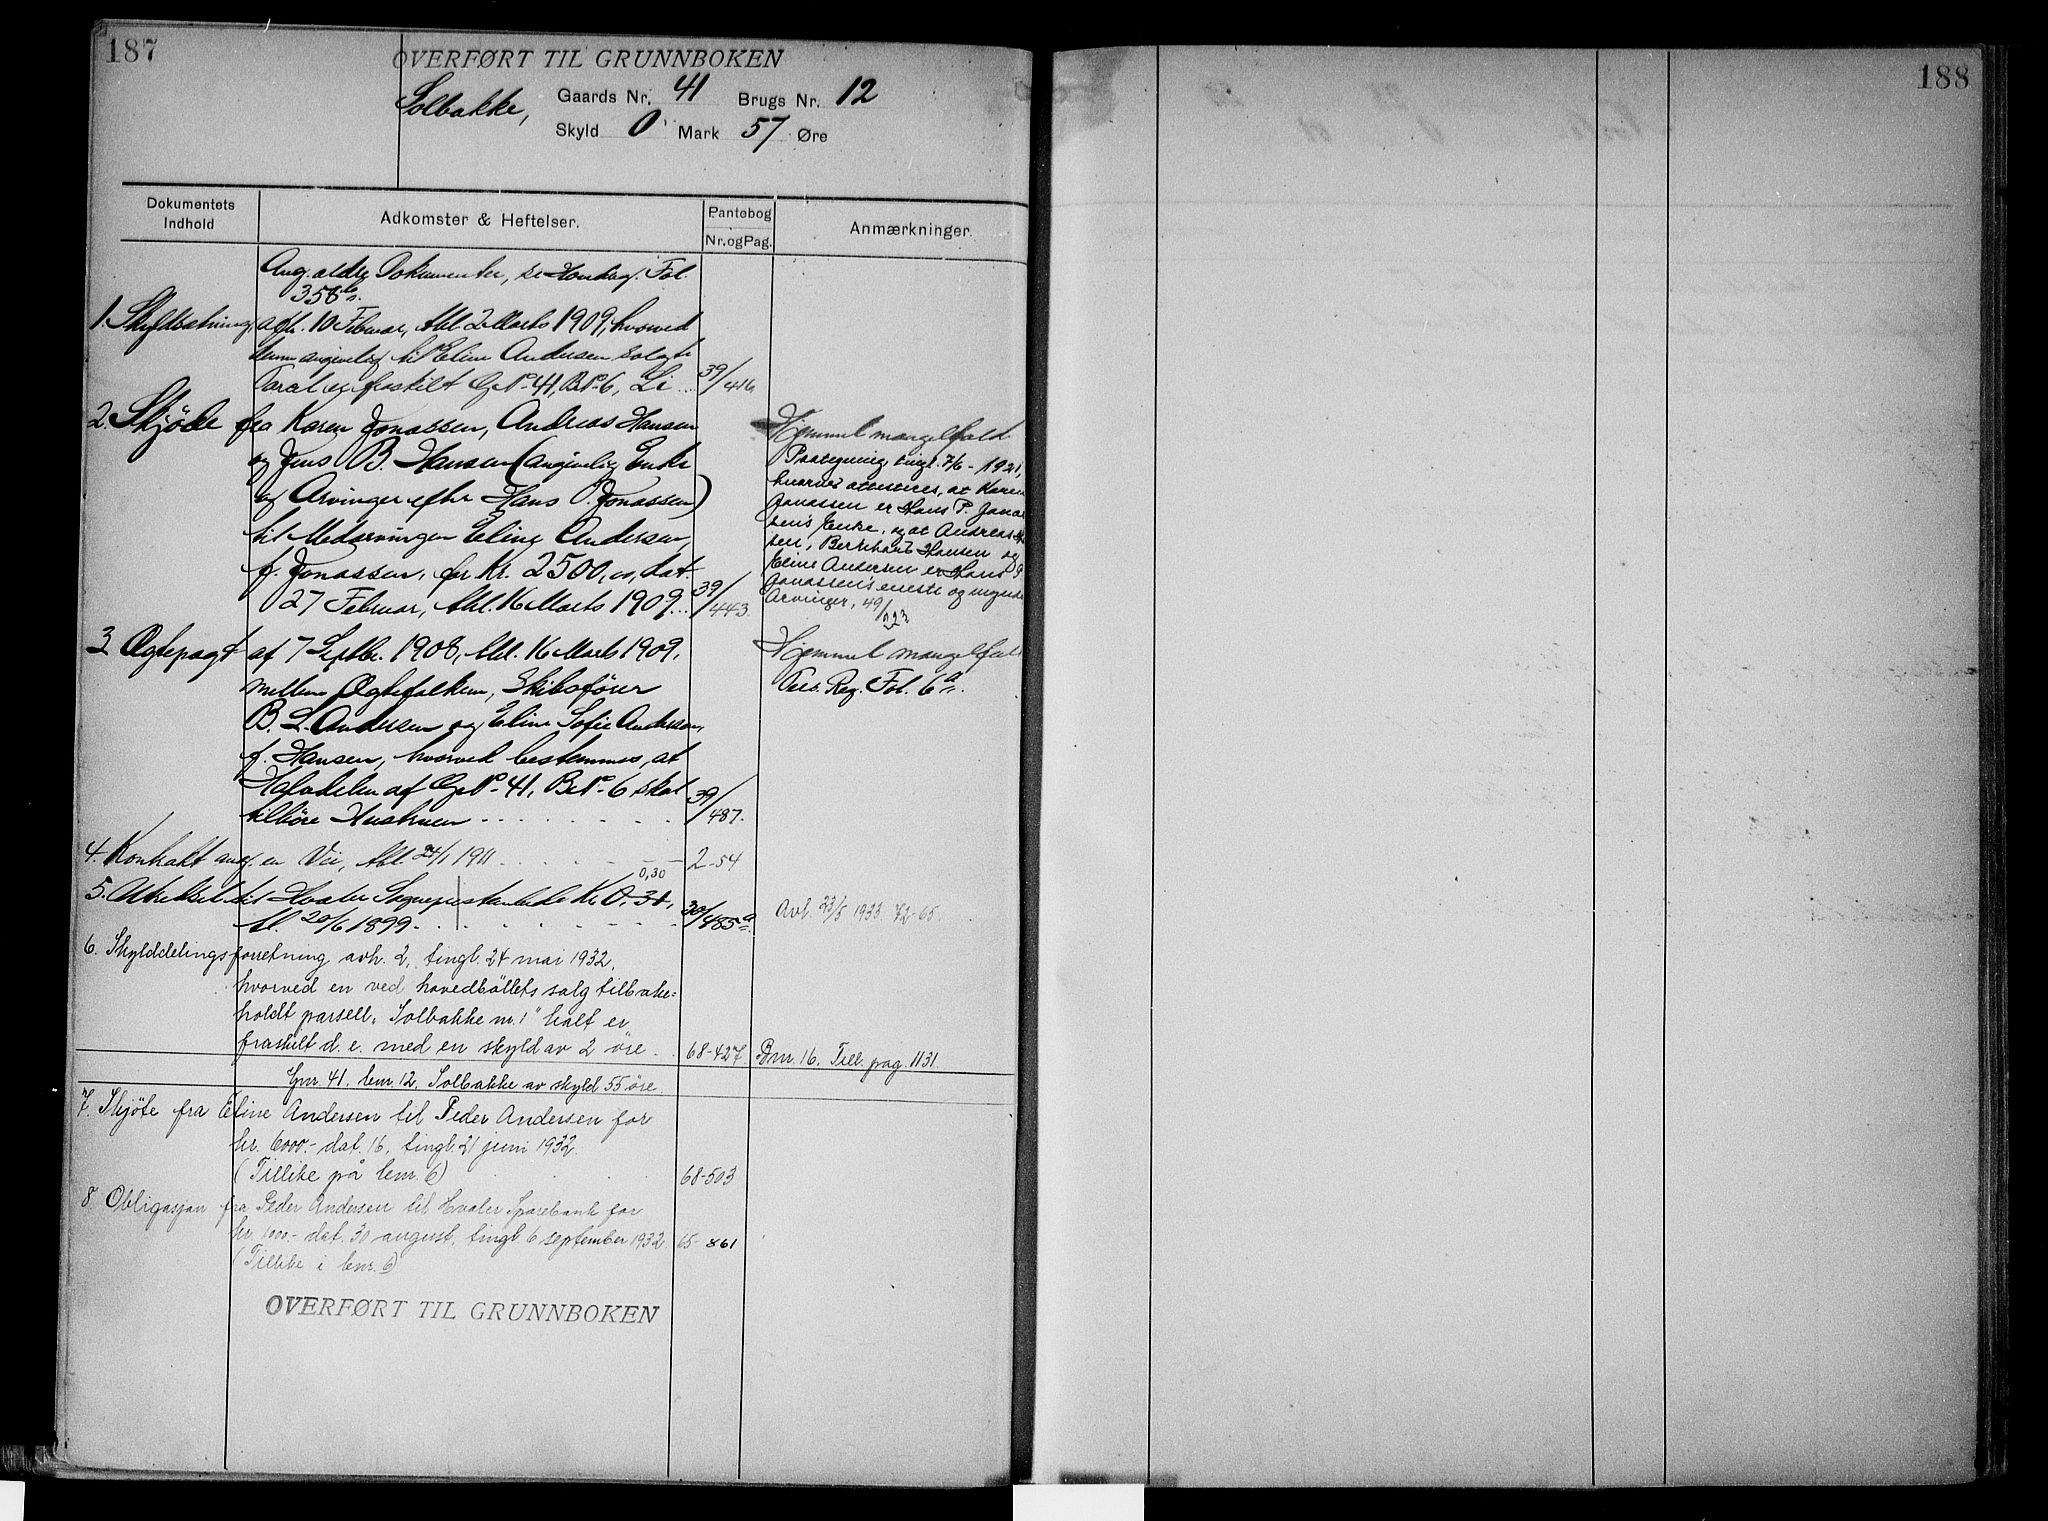 187
OVERFØRT TIL GRUNNBOKEN
Solbakke, Gaards Nr. 41 Brugs Nr. 12
Skyld 0 Mark 57 Øre
Dokumentets Indhold
Adkomster & Heftelser.
Pantebog
Nr. og Pag.
Anmærkninger.
Ang. ældre Dokumenter, se Fol.
358b.
1. Skyldsætning afh. 10 Februar, thl. 2 Marts 1909, hvorved
denn angivelig til Eline Andersen solgte
Parcel er fraskilt G.No. 41, B.No. 6, Li ... 39/416
2. Skjøde fra Karen Jonassen, Andreas Hansen
og Jens B. Hansen (angivelig Enke
og Arvinger efter Hans P. Jonassen)
til Medarvingen Eline Andersen,
f. Jonassen, for Kr. 2500,00, dat.
27 Februar, thl. 16 Marts 1909... 39/443.
Hjemmel mangelfuld
Paategning tingl. 7/6 - 1921,
hvorved attesteres, at Karen
Jonassen er Hans P. Jonas-
sen's Enke, og at Andreas
sen, Bernhard Hansen og
Eline Andersen er Hans P.
Jonassen's eneste og myndige
Arvinger, 49/223
3. Ægtepagt af 7 Septbr. 1908, thl. 16 Marts 1909,
mellem Ægtefolkene, Skibsfører
B. L. Andersen og Eline Sofie Andersen,
f. Hansen, hvorved bestemmes, at
Halvdelen af G.No. 41, B.No. 6 skal
tilhøre Hustruen . . . . . . 39/487.
Hjemmel mangelfuld
Pers. Reg. Fol. 6a.
4. Kontrakt ang. en Vei, thl. 24/1 1911 . . . . 2-54
0,30
5. til Hvaler Kr. 0,34,
tl. 20/6 1899 . . . . . . 30/485a.
Avl. 23/5 1933. 72-65.
6. Skylddelingsforretning avh. 2, tingl. 24 mai 1932,
hvorved en ved hovedbøllets salg tilbake=
holdt parsell, "Solbakke nr. 1" kalt er
fraskilt d. e. med en skyld av 2 øre . 68-427. Bnr. 16. Till. pag. 1131
Gnr. 41, bnr. 12, Solbakke av skyld 55 øre
7. Skjøte fra Eline Andersen til Peder Andersen for
kr. 6000.- dat. 16, tingl. 21 juni 1932.
(Tillike på bnr. 6) . . . 68-503
8. Obligasjon fra Peder Andersen til Hvaler Sparebank for
kr. 1000.- dat. 30 august, tingl. 6 september 1932 65-861
(Tillike i bnr. 6)
OVERFØRT TIL GRUNNBOKEN
188